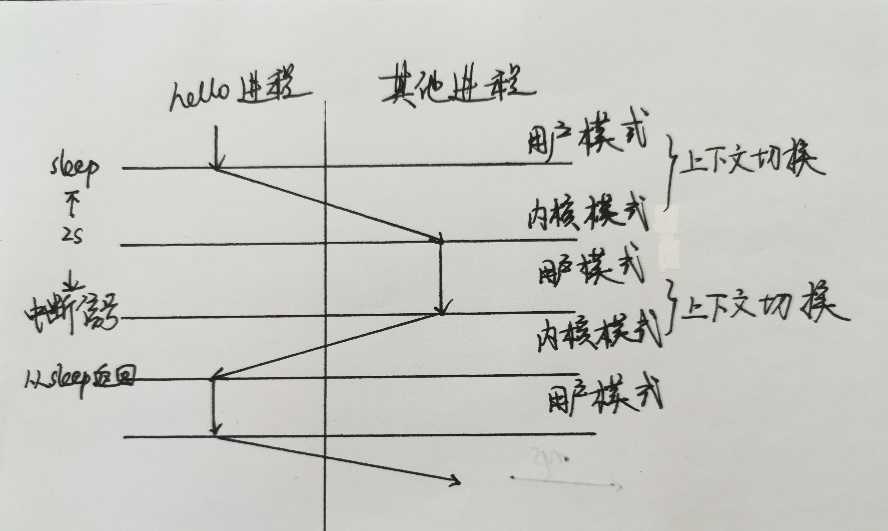 hello进程
其他进程
用户模式
sleep
上下文切换
内核模式
2s
用户模式
中断信号
上下文切换
内核模式
从sleep返回
用户模式